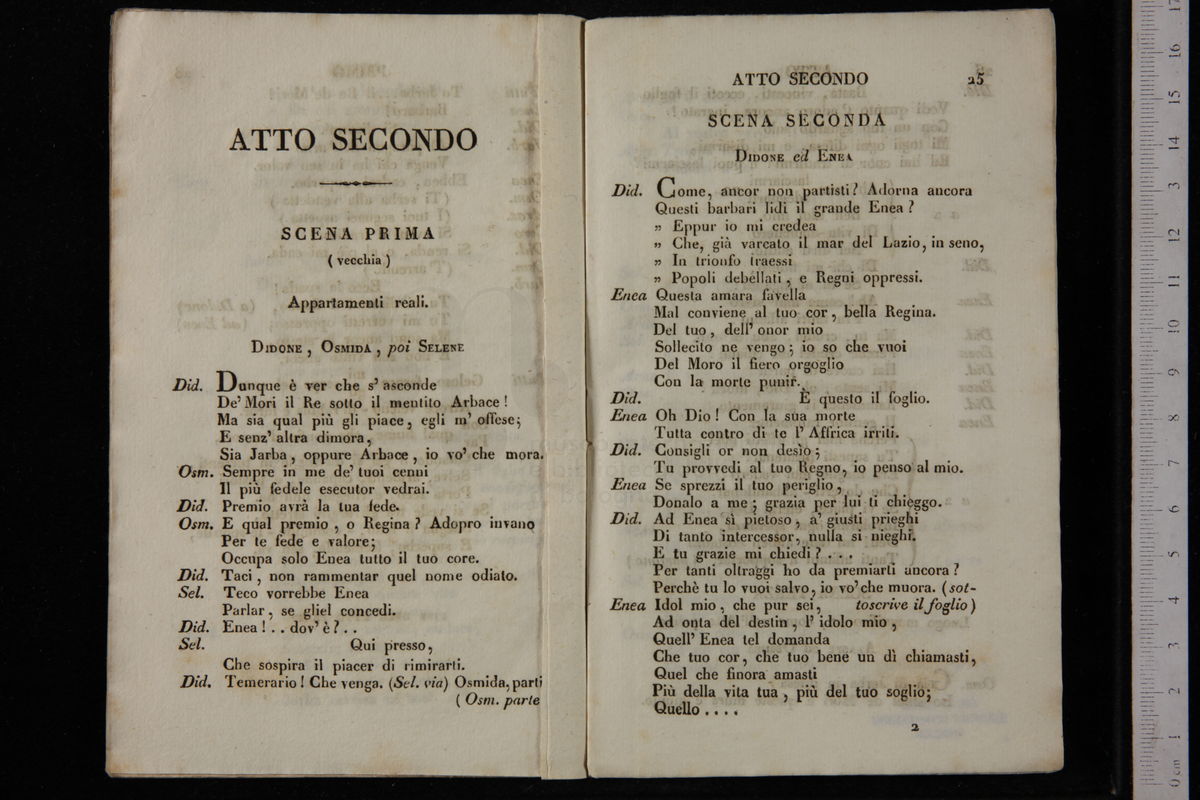 ATTO SECONDO
SCENA PRIMA
( vecchia )
Appartamenti reali.
DIDONE , OSMIDA , poi SELENE
Did. Dunque è ver che s' asconde
De' Mori il Re sotto il mentito Arbace !
Ma sia qual più gli piace, egli m' offese;
E senz' altra dimora,
Sia Jarba , oppure Arbace , io vo' che mora.
Osm. Sempre in me de' tuoi cenni
Il più fedele esecutor vedrai.
Did. Premio avrà la tua fede.
Osm. E qual premio , o Regina ? Adopro invano
Per te fede e valore;
Occupa solo Enea tutto il tuo core.
Did. Taci , non rammentar quel nome odiato.
Sel. Teco vorrebbe Enea
Parlar , se gliel concedi.
Did. Enea ! . . dov' è ? . .
Sel. Qui presso,
Che sospira il piacer di rimirarti.
Did. Temerario ! Che venga. (Sel. via) Osmida, parti
( Osm. parte
ATTO SECONDO 25
SCENA SECONDA
DIDONE ed ENEA
Did. Come, ancor non partisti ? Adorna ancora
Questi barbari lidi il grande Enea ?
„ Eppur io mi credea
„ Che, già varcato il mar del Lazio, in seno,
„ In trionfo traessi
„ Popoli debellati , e Regni oppressi.
Enea Questa amara favella
Mal conviene al tuo cor , bella Regina.
Del tuo , dell' onor mio
Sollecito ne vengo ; io so che vuoi
Del Moro il fiero orgoglio
Con la morte punir.
Did. È questo il foglio.
Enea Oh Dio ! Con la sua morte
Tutta contro di te l' Affrica irriti.
Did. Consigli or non desìo ;
Tu provvedi al tuo Regno, io penso al mio.
Enea Se sprezzi il tuo periglio ,
Donalo a me ; grazia per lui ti chieggo.
Did. Ad Enea sì pietoso , a' giusti prieghi
Di tanto intercessor, nulla si nieghi.
E tu grazie mi chiedi ? . . .
Per tanti oltraggi ho da premiarti ancora ?
Perchè tu lo vuoi salvo, io vo' che muora. (sot-
Enea Idol mio , che pur sei, toscrive il foglio)
Ad onta del destin , l' idolo mio ,
Quell' Enea tel domanda
Che tuo cor, che tuo bene un dì chiamasti,
Quel che finora amasti
Più della vita tua , più del tuo soglio;
Quello . . . .
2